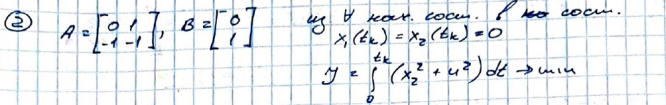 ② A = [0 1; -1 -1], B = [0; 1] из ∀ нач. сост. в сост.
x₁(tₖ) = x₂(tₖ) = 0
J = ∫₀^{tₖ} (x₂² + u²) dt → min